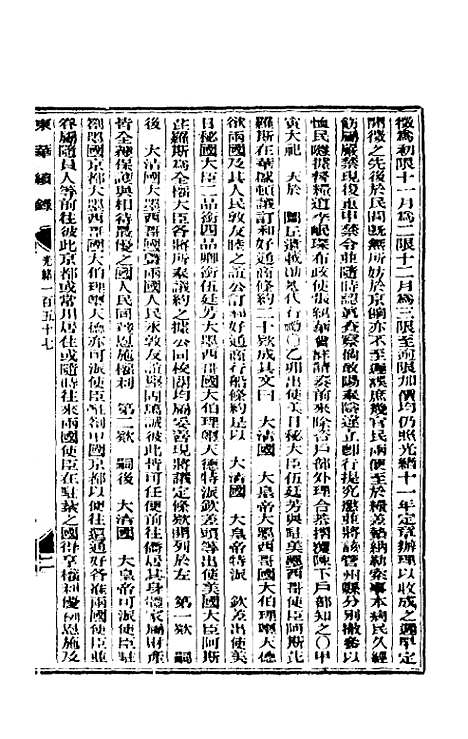 徵為初限十一月為二限十二月為三限至逾限加價均仍照光緒十一年定章辦理以收成之遲早定
開徵之先後於民間既無所妨於京餉亦不至遲誤庶幾官民兩便至於糧差綹納勒索事本病民久經
飭屬嚴禁現復重申禁令並隨時認真查察倘敢陽奉陰違立即行提究懲並將該管州縣分別撤參以
恤民隱據督糧道李岷琛布政使張紹華會詳請奏前來除咨戶部外理合恭摺覆陳下戶部知之〇甲
寅大祀 天於 圜丘遣載勛恭代行禮〇乙卯出使美日秘大臣伍廷芳與駐美墨西哥使臣阿斯比
羅斯在華盛頓議訂和好通商條約二十款成其文曰 大清國 大皇帝大墨西哥國大伯理璽天德
欲兩國及其人民敦友睦之誼公訂和好通商行船條約是以 大清國 大皇帝特派 欽差出使美
日秘國大臣二品銜四品卿銜伍廷芳大墨西哥國大伯理璽天德特派欽差頭等出使美國大臣阿斯
芘羅斯為全權大臣各將所奉議約之據公同校閱均屬妥善現將議定條款開列於左 第一款 嗣
後 大清國與大墨西哥國暨兩國人民永敦友誼堅固篤誠彼此皆可任便前往僑居其身體家屬財產
皆全獲保護與相待最優之國人民同獲恩施權利 第二款 嗣後 大清國 大皇帝可派使臣駐
劄墨國京都大墨西哥國大伯理璽天德亦可派使臣駐劄中國京都以便往還通好各准兩國使臣並
眷屬隨員人等前往彼此京都或常川居住或隨時往來兩國使臣在駐華之國得享權利優例恩施及
東華續錄 光緒一百五十七